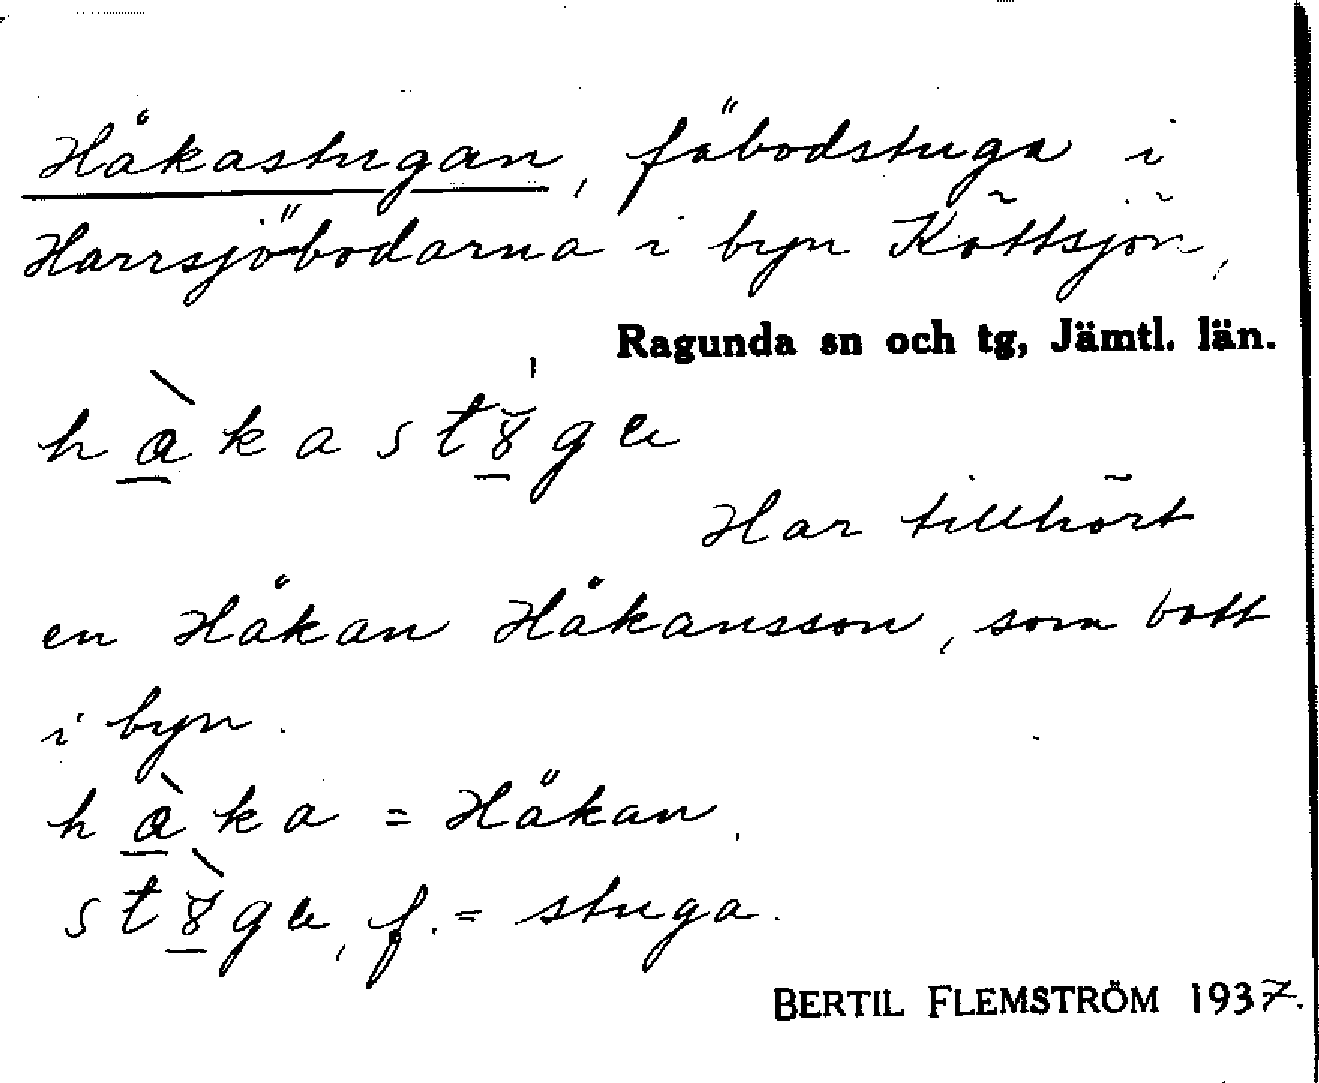 Håkastugan, fäbodstuga i
Harrsjöbodarna i byn Köttsjön,
Ragunda sn och tg, Jämtl. län.
Har tillhört
en Håkan Håkansson, som bott
i byn.
= Håkan.
f. = stuga.
BERTIL FLEMSTRÖM 1937.